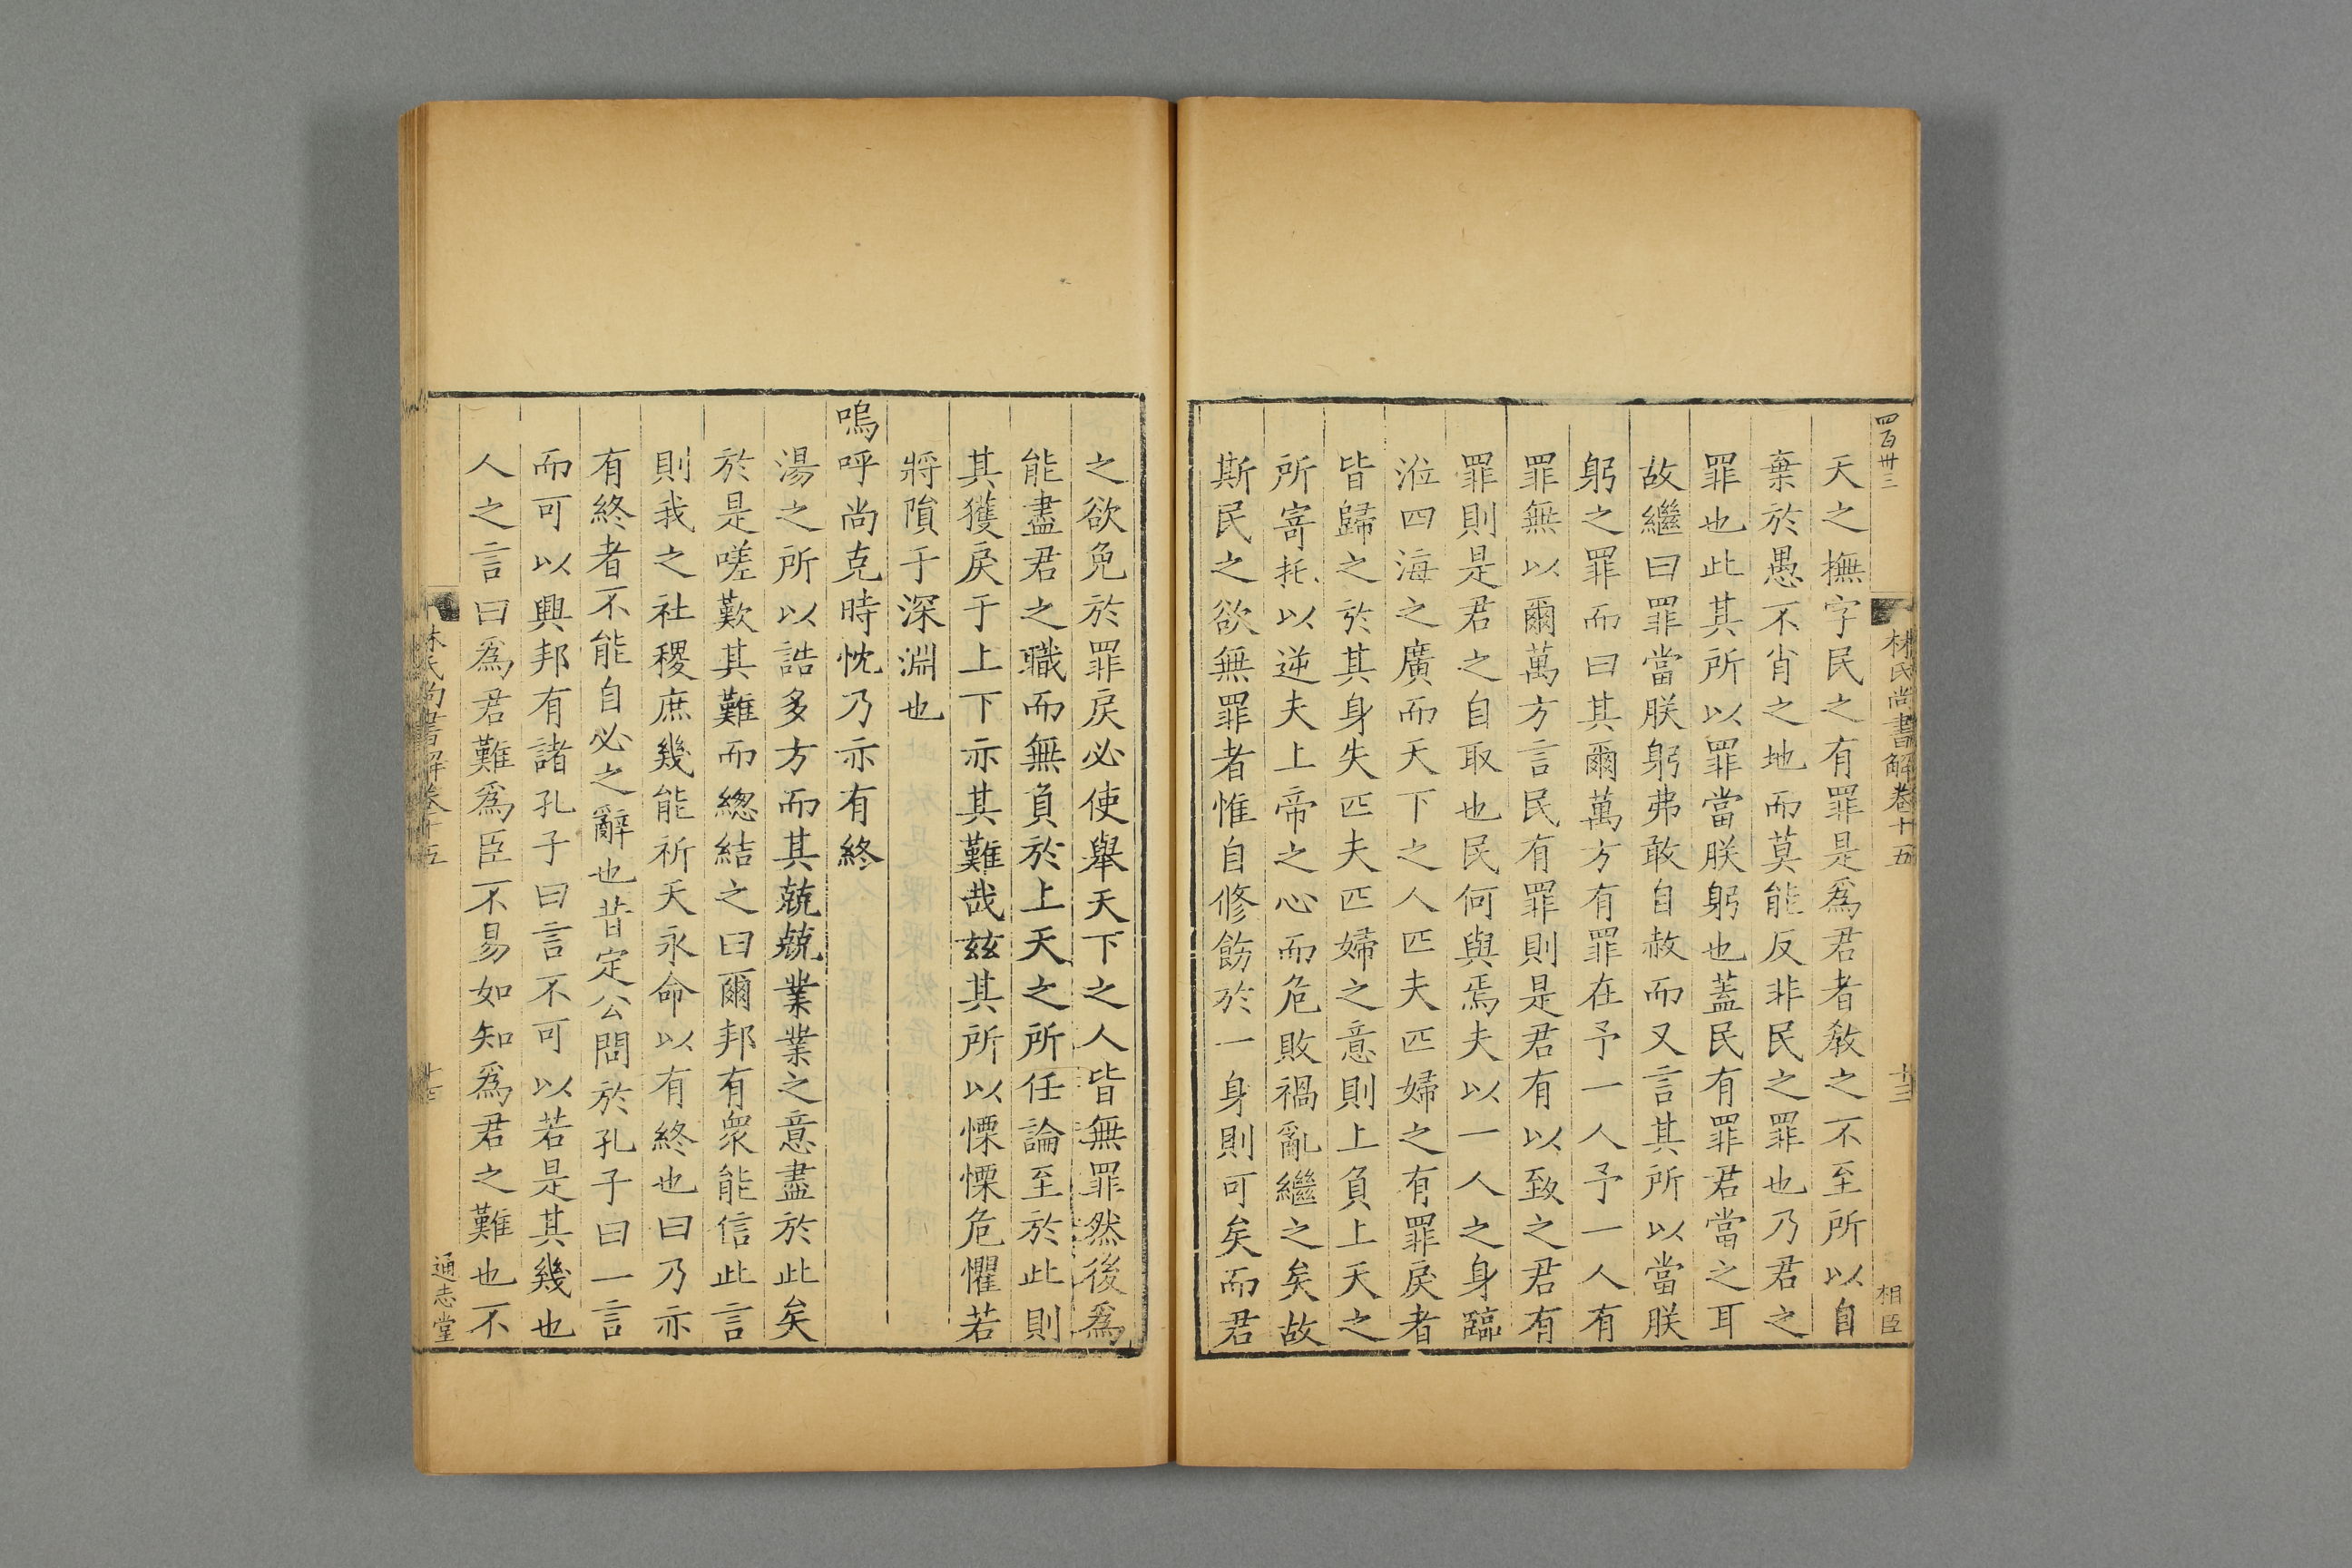 四百卅三
林氏尚書解卷十五
十三
相臣
天之撫字民之有罪是爲君者敎之不至所以自
棄於愚不肖之地而莫能反非民之罪也乃君之
罪也此其所以罪當朕躬也蓋民有罪君當之耳
故繼曰罪當朕躬弗敢自赦而又言其所以當朕
躬之罪而曰其爾萬方有罪在予一人予一人有
罪無以爾萬方言民有罪則是君有以致之君有
罪則是君之自取也民何與焉夫以一人之身臨
涖四海之廣而天下之人匹夫匹婦之有罪戾者
皆歸之於其身失匹夫匹婦之意則上負上天之
所寄托以逆夫上帝之心而危敗禍亂繼之矣故
斯民之欲無罪者惟自修飭於一身則可矣而君
之欲免於罪戾必使舉天下之人皆無罪然後爲
能盡君之職而無負於上天之所任論至於此則
其獲戾于上下亦其難哉兹其所以慄慄危懼若
將隕于深淵也
嗚呼尚克時忱乃亦有終
湯之所以誥多方而其兢兢業業之意盡於此矣
於是嗟歎其難而緫結之曰爾邦有衆能信此言
則我之社稷庶幾能祈天永命以有終也曰乃亦
有終者不能自必之辭也昔定公問於孔子曰一言
而可以興邦有諸孔子曰言不可以若是其幾也
人之言曰爲君難爲臣不易如知爲君之難也不
林氏尚書解卷十五
十四
通志堂